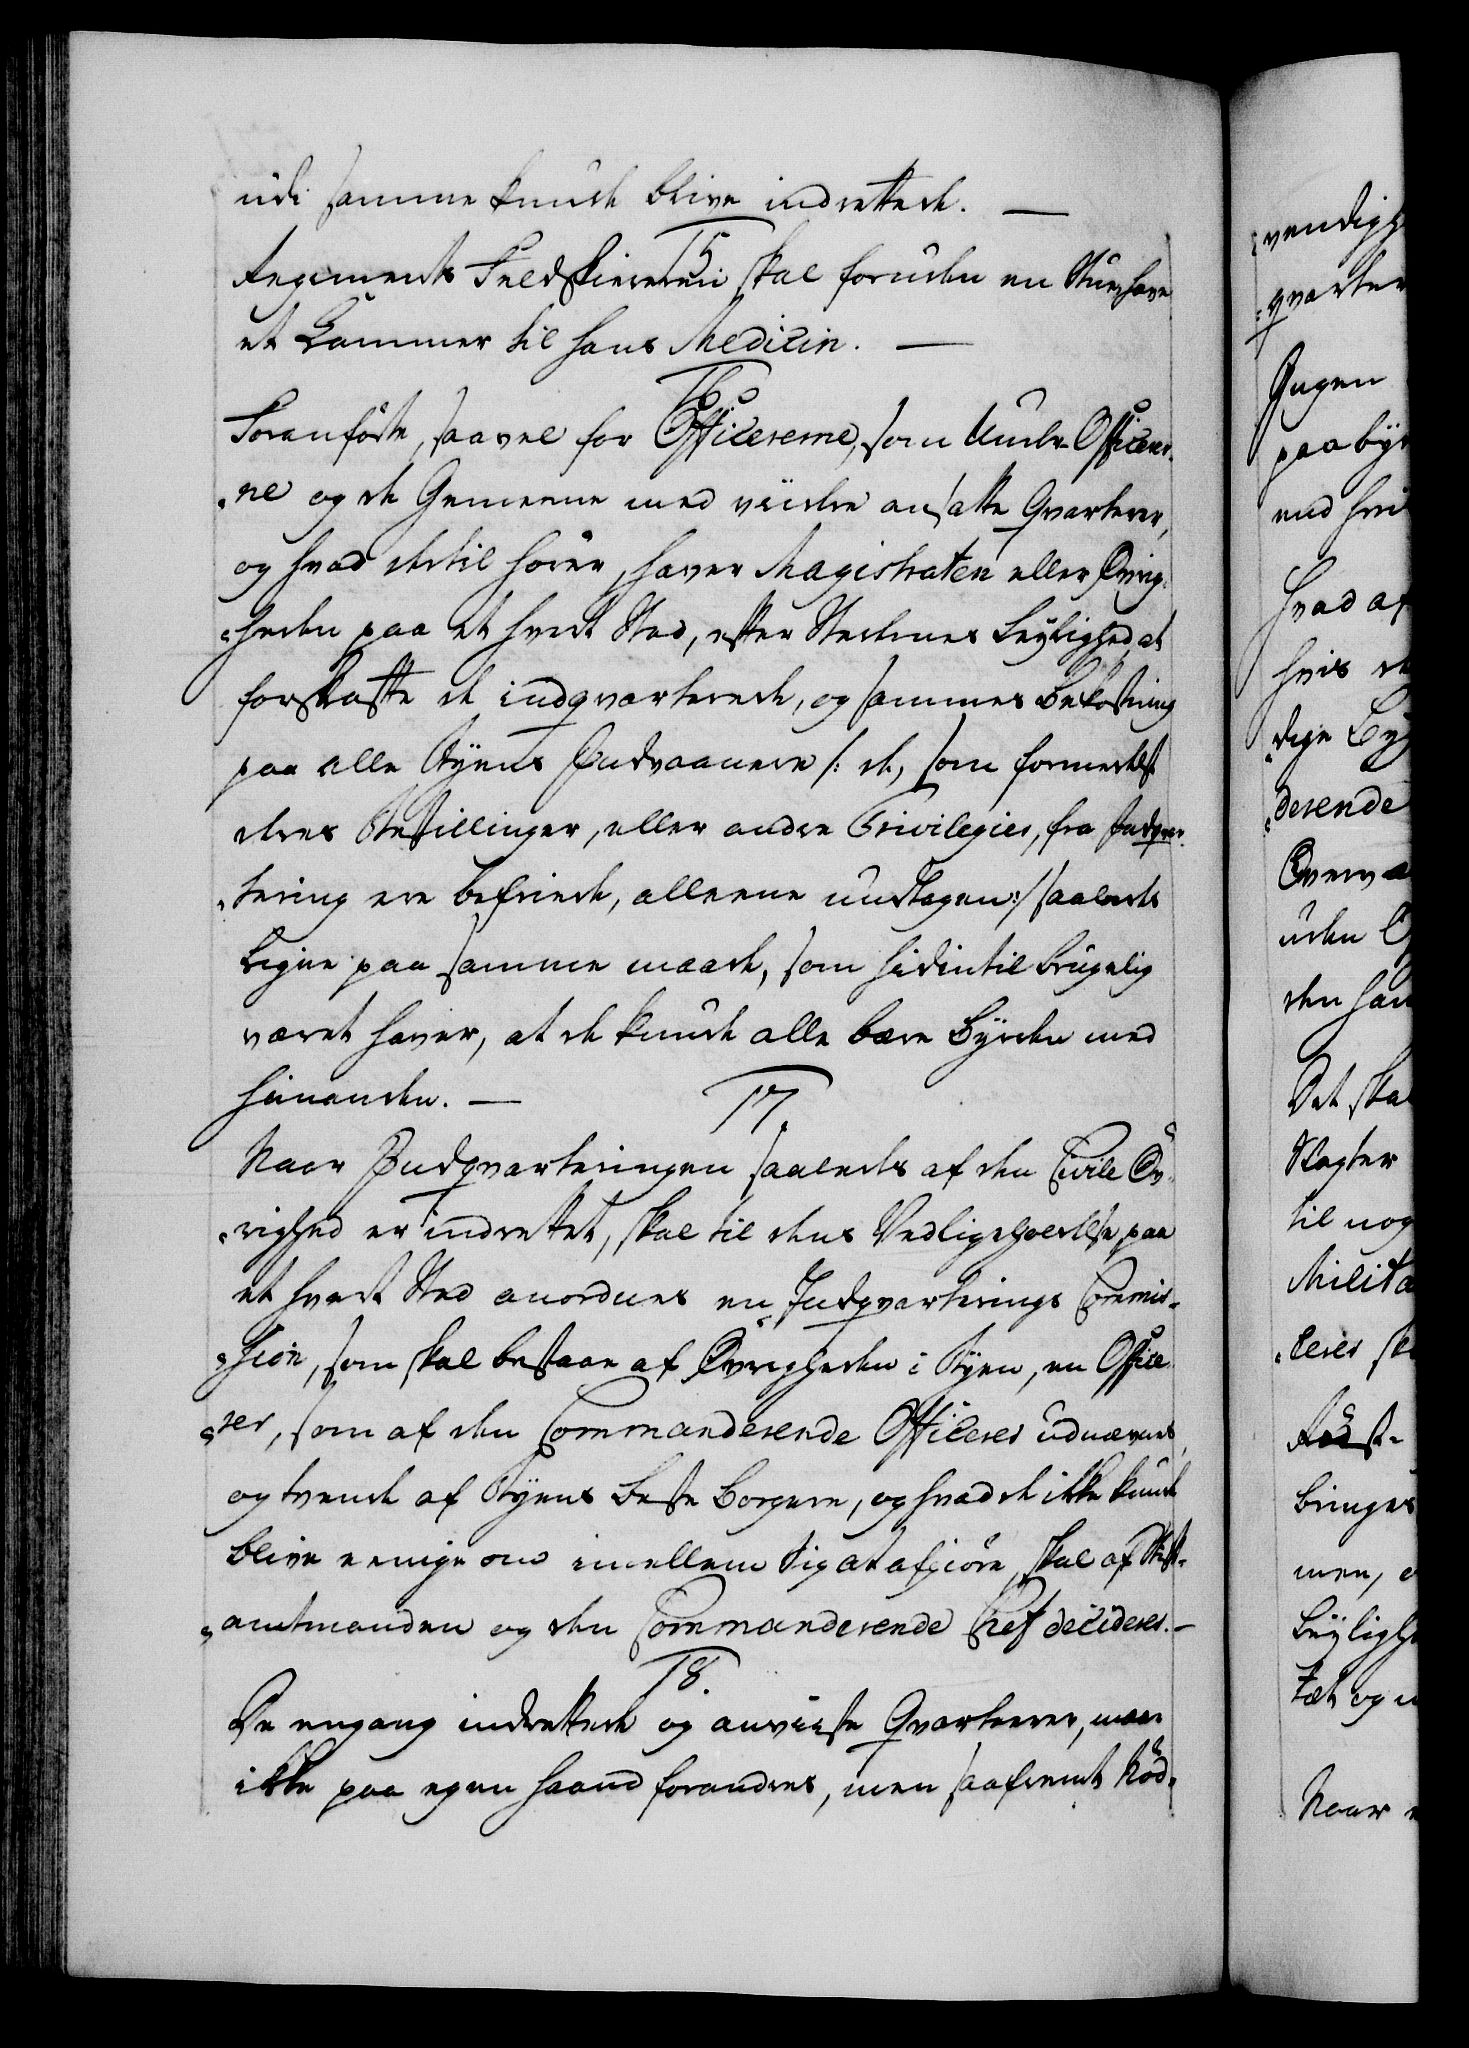 udi samme kunde blive indrettede. —
15
Regiments Feldskiereren skal foruden en Stue, have
et Kammer til hans Medicin. —
16
Foranførte, saavel for Officererne, som Under-Officerer-
ne og de Gemeene med viidre ansatte Qvarterer,
og hvad dertil hører, haver Magistraten eller Øvrig-
heden paa et hvert Sted, efter Stedernes Leylighed at
forskaffe de indqvarterede, og sammes Bekostning
paa alle Byens Indvaanere /: de, som formedelst
deres Bestillinger, eller andre Privilegier, fra Indqvar-
tering ere befriede, alleene undtagen :/ saaledes
ligne paa samme maade, som hidintil brugelig
været haver, at de kunde alle bære Byrden med
hinanden. —
17.
Naar Indqvarteringen saaledes af den Civile Øv-
righed er indrettet, skal til dens Vedligeholdelse, paa
et hvert Sted anordnes en Indqvarterings Commis-
sion, som skal bestaae af Øvrigheden i Byen, en Office-
rer, som af den Commanderende Officerer udnævnes,
og tvende af Byens beste Borgere, og hvad de ikke kunde
blive eenige om imellem sig at afgiøre, skal af Stift-
amtmanden og den Commanderende Chef decideres. —
18.
De engang indrettede og anviiste Qvarterer, maae
ikke paa egen Haand forandres, men saafremt Nød-
vendigh
qvarter
Ingen
paabyr
end hvi
Hvad af
hvis de
dige Ley
derende
Overvæ
uden O
den han
Det skal
Slagter
til nog
Milita
cerer s
bringes
men, e
Leyligh
tæt og u
Naar